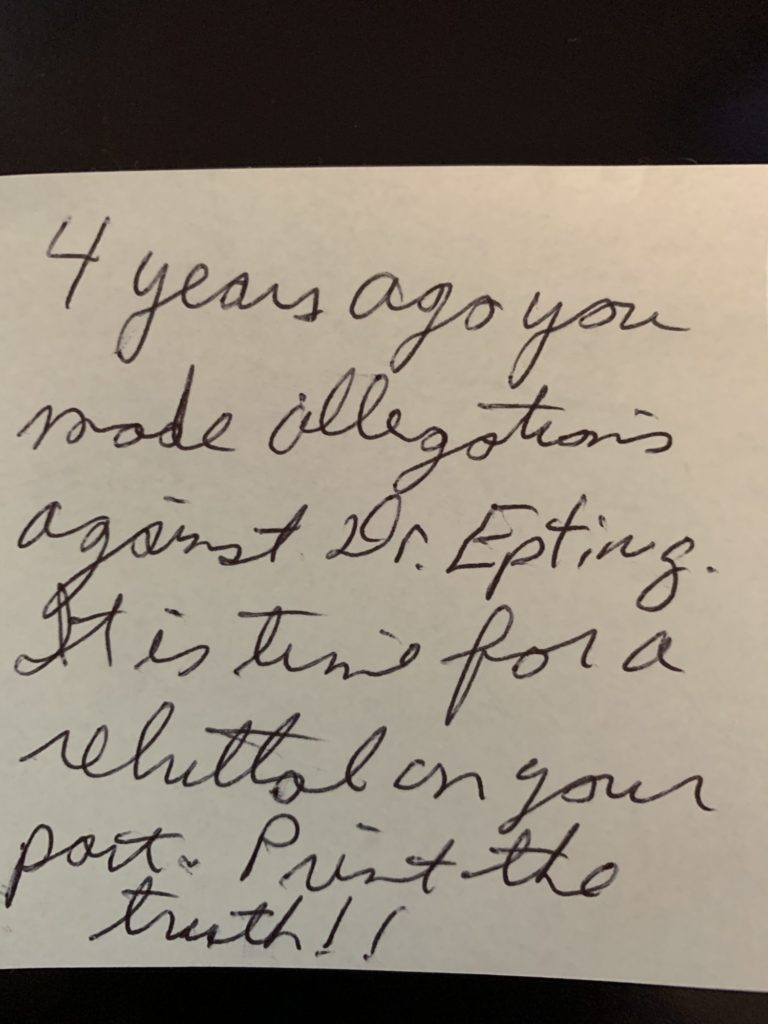 4 years ago you
made allegations
against Dr. Epting.
It is time for a
rebuttal on your
part. Print the
truth!!